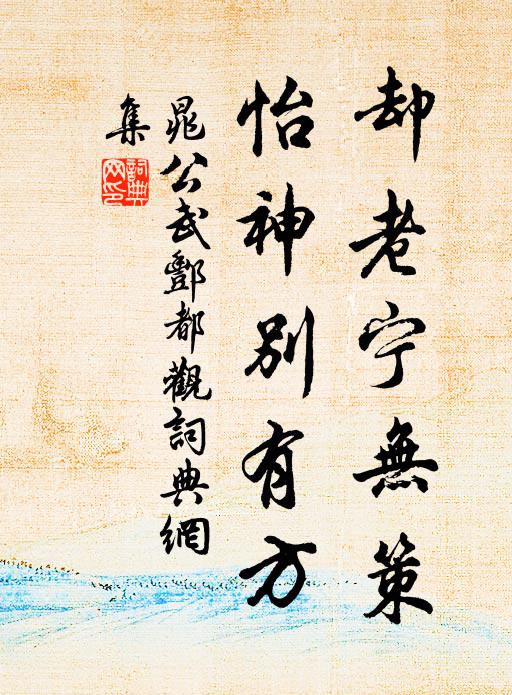 却老宁無策
怡神別有方
晁公武酆都觀詞典網
集
詞典網印